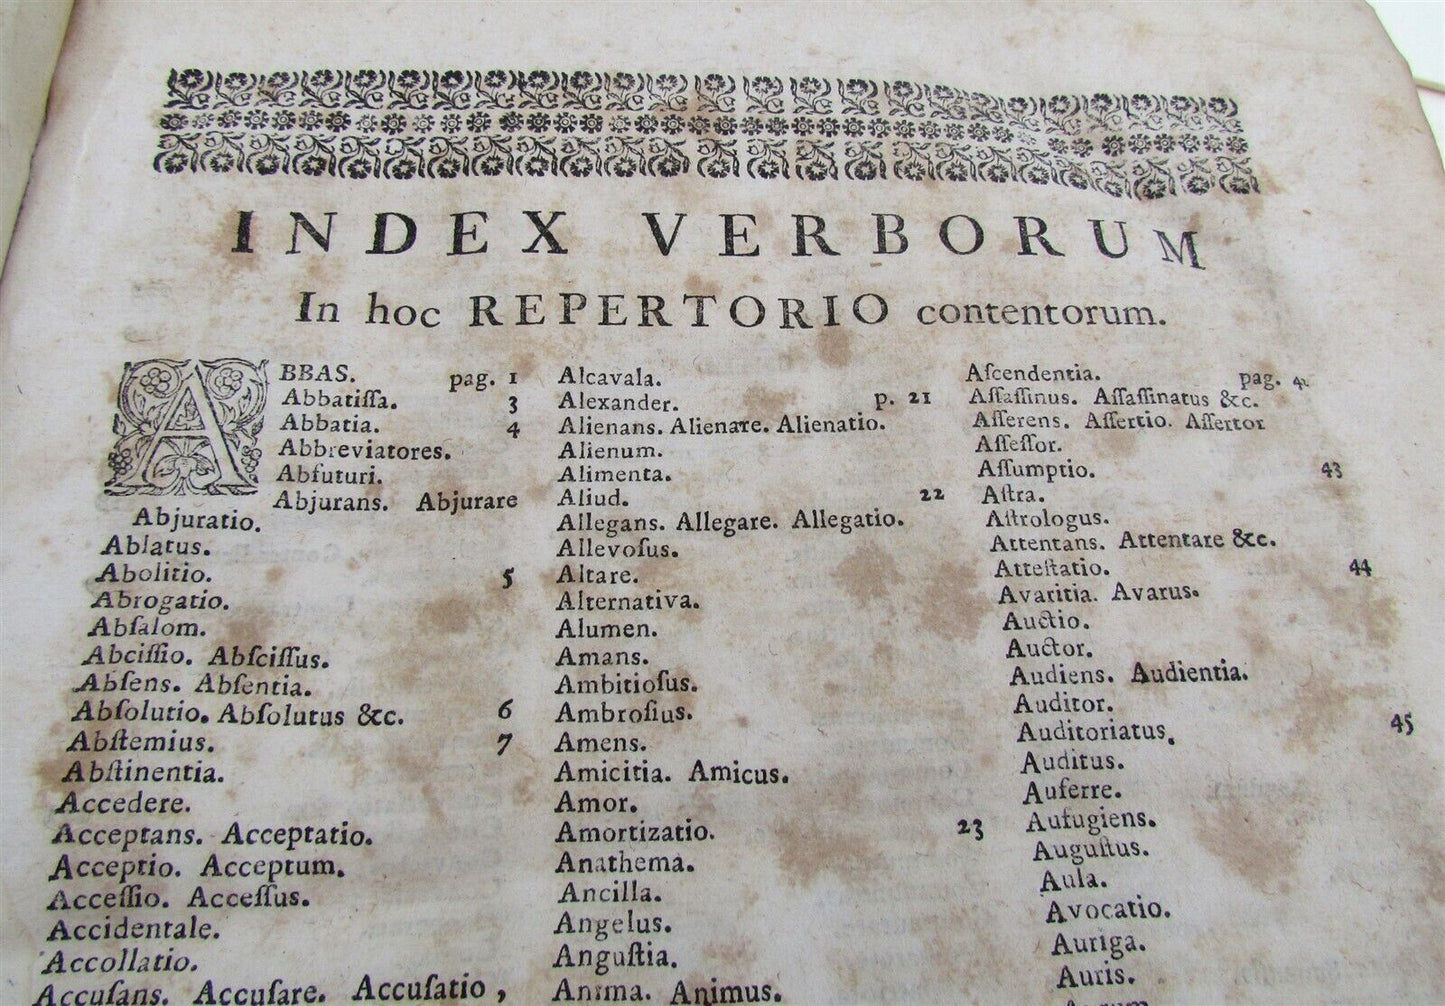 INDEX VERBORUM
In hoc REPERTORIO contentorum.
ABBAS. pag. 1
Abbatiſſa. 3
Abbatia. 4
Abbreviatores.
Abſuturi.
Abjurans. Abjurare
Abjuratio.
Ablatus.
Abolitio. 5
Abrogatio.
Abſalom.
Abciſſio. Abſciſſus.
Abſens. Abſentia.
Abſolutio. Abſolutus &c. 6
Abſtemius. 7
Abſtinentia.
Accedere.
Acceptans. Acceptatio.
Acceptio. Acceptum.
Acceſſio. Acceſſus.
Accidentale.
Accollatio.
Accuſans. Accuſare. Accuſatio,
Alcavala.
Alexander. p. 21
Alienans. Alienare. Alienatio.
Alienum.
Alimenta.
Aliud. 22
Allegans. Allegare. Allegatio.
Allevoſus.
Altare.
Alternativa.
Alumen.
Amans.
Ambitioſus.
Ambroſius.
Amens.
Amicitia. Amicus.
Amor.
Amortizatio. 23
Anathema.
Ancilla.
Angelus.
Anguſtia.
Anima. Animus.
Aſcendentia. pag.
Aſſaſſinus. Aſſaſſinatus &c.
Aſſerens. Aſſertio. Aſſertor
Aſſeſſor.
Aſſumptio. 43
Aſtra.
Aſtrologus.
Attentans. Attentare &c.
Atteſtatio. 44
Avaritia. Avarus.
Auctio.
Auctor.
Audiens. Audientia.
Auditor.
Auditoriatus. 45
Auditus.
Auferre.
Aufugiens.
Auguſtus.
Aula.
Avocatio.
Auriga.
Auris.